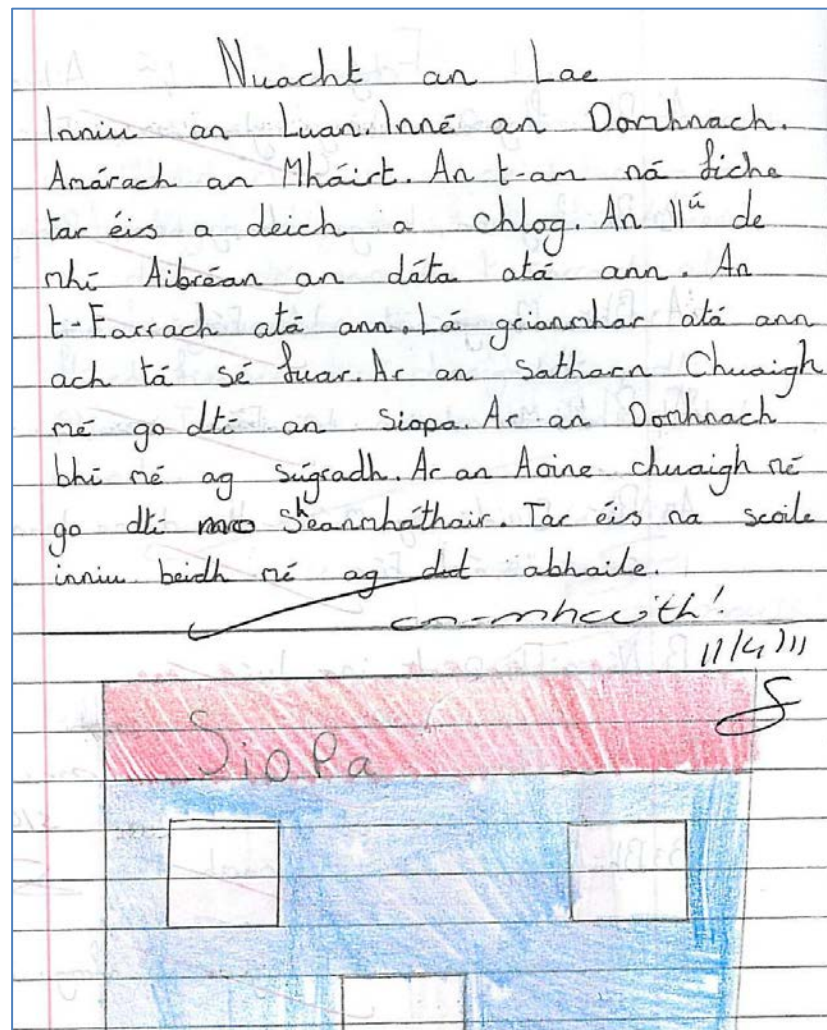 Nuacht an Lae
Inniu an Luan. Inné an Domhnach.
Amárach an Mháirt. An t-am ná fiche
tar éis a deich a chlog. An 11ú de
mhí Aibréan an dáta atá ann. An
t-Earrach atá ann. Lá grianmhar atá ann
ach tá sé fuar. Ar an Satharn Chuaigh
mé go dtí an Siopa. Ar an Domhnach
bhí mé ag súgradh. Ar an Aoine chuaigh mé
go dtí mo Sheanmháthair. Tar éis na scoile
inniu beidh mé ag dul abhaile.
an-mhaith!
11/4/11
Siopa